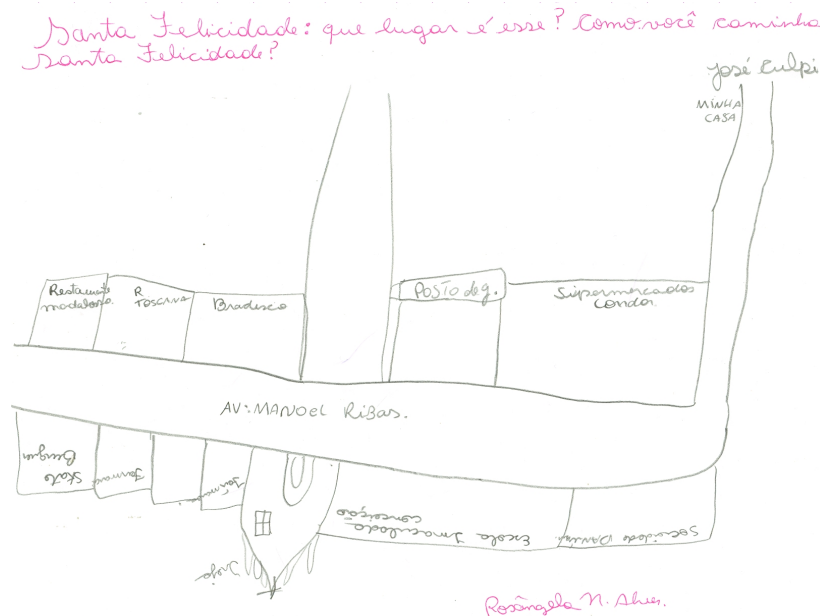 Santa Felicidade: que lugar é esse? Como você caminha
Santa Felicidade?
José Culpi
MINHA
CASA
Restaurante
madalosso.
R
TOSCANA
Bradesco
POSTO de g.
Supermercados
Condor.
AV: MANOEL RIBAS.
Skate
Farmaci
Farmaci
Igreja
Escola Imaculada
conceição
Sociedade
Rosângela N. Alves.